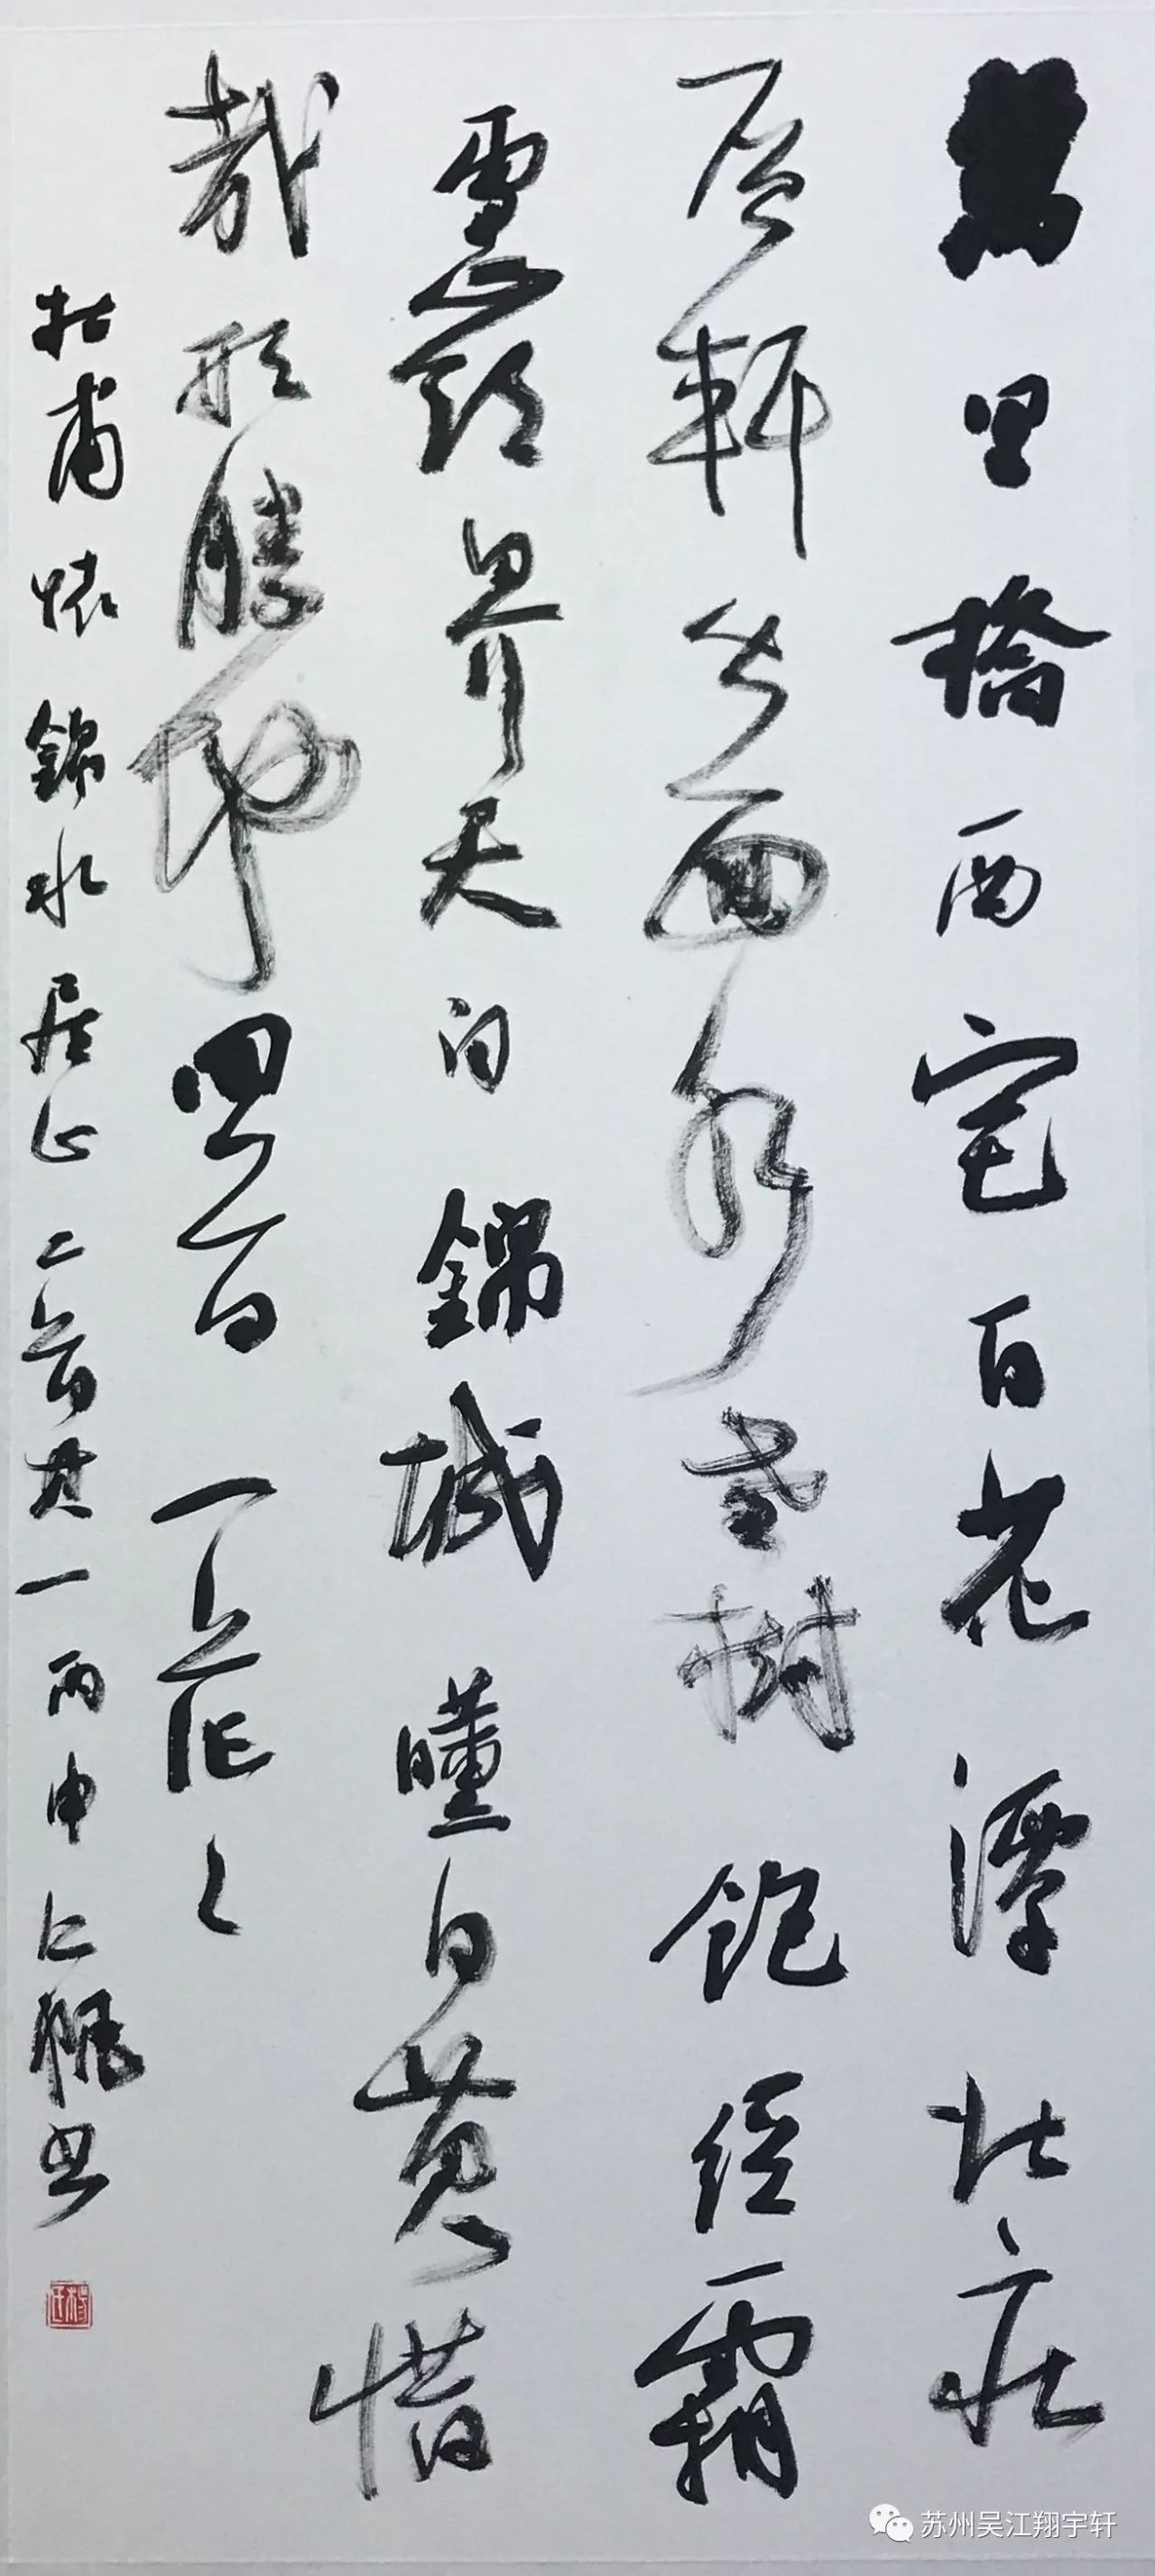 萬里橋西宅百花潭北莊
層軒皆面水老樹飽經霜
雪嶺界天白錦城曛日黄惜
哉形勝地回首一茫茫
杜甫懷錦水居止二首其一丙申仁楓書
苏州吴江翔宇轩